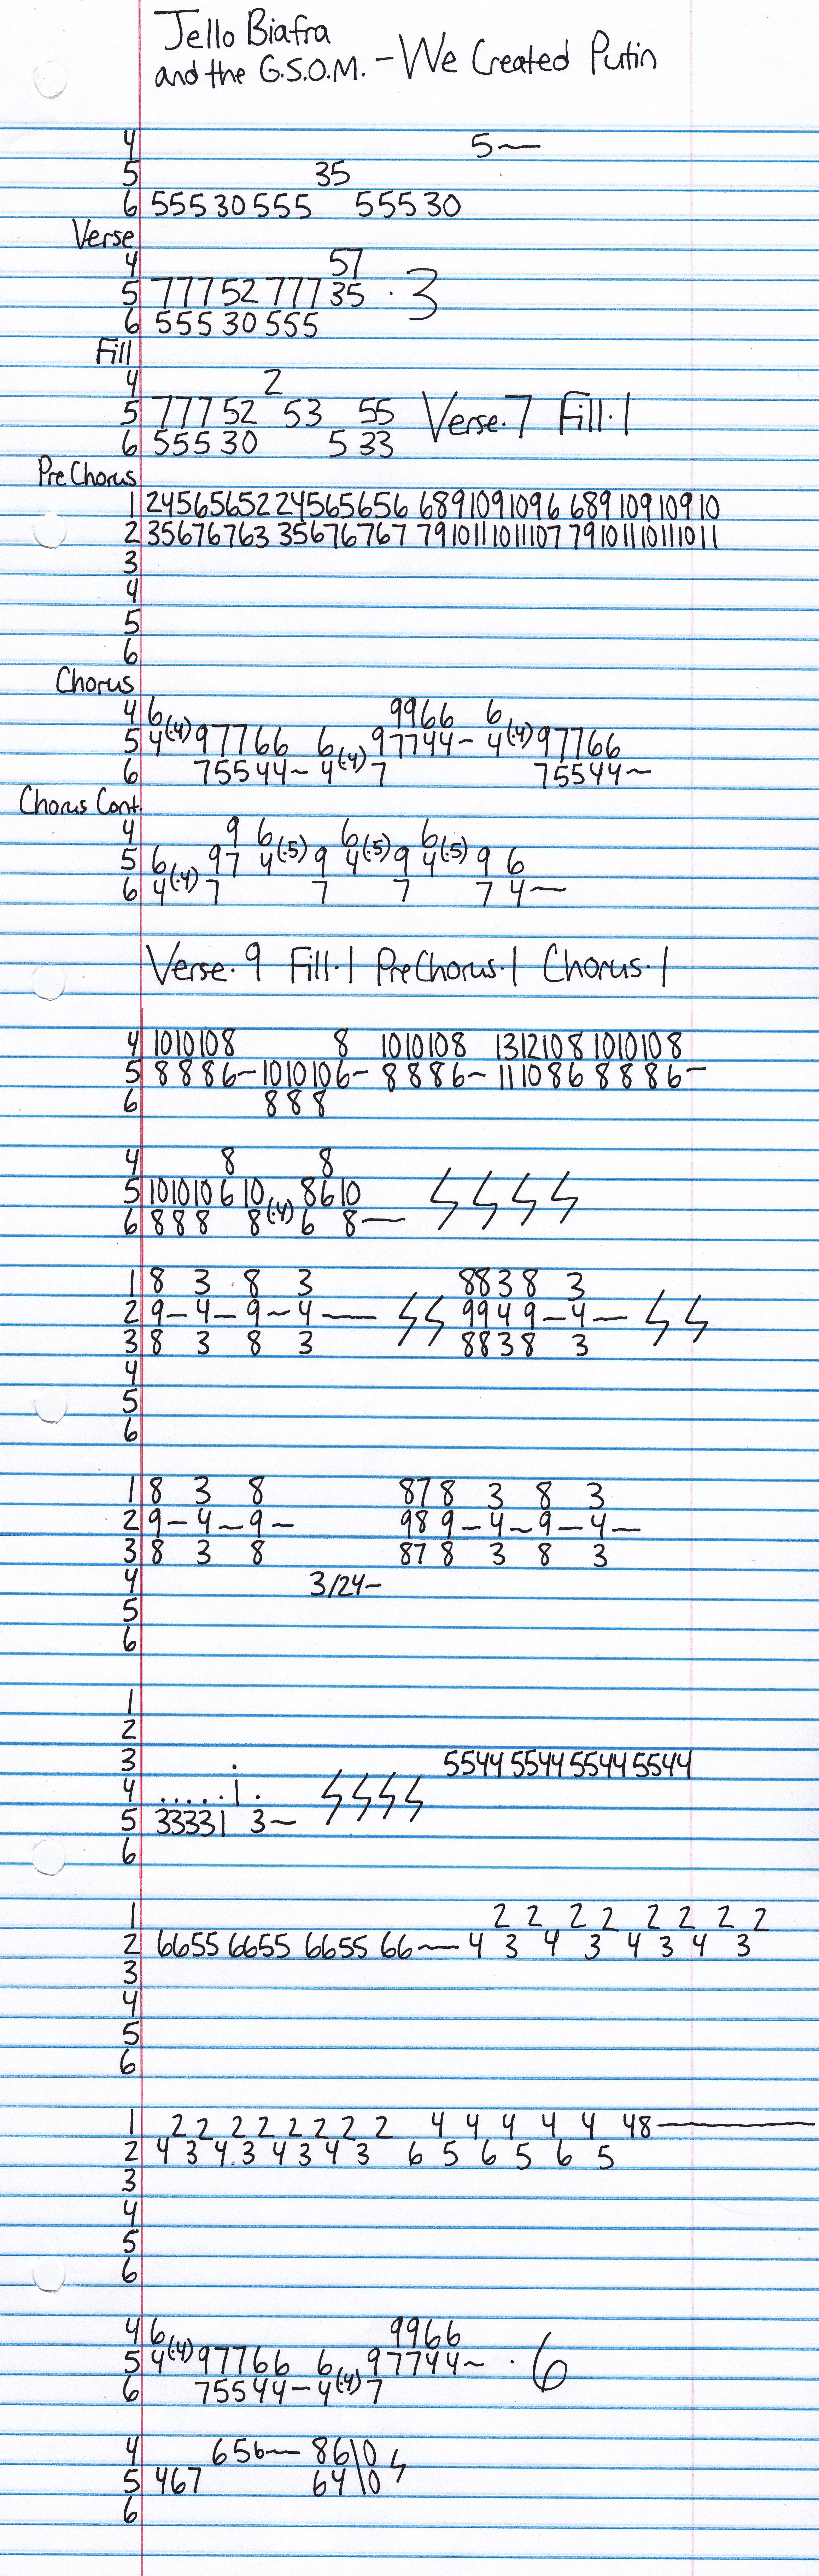 Jello Biafra
and the G.S.O.M. - We Created Putin
4 5—
5 35
6 55530555 55530
Verse
4 57
5 7775277735 · 3
6 55530555
Fill
4 2
5 77752 53 55 Verse·7 Fill·1
6 55530 5 33
PreChorus
1 245656522456565 6 6891091096 68910910910
2 35676763 35676767 791011101107 7910111011011
3
4
5
6
Chorus
4 6 9966 6
5 4(·4)97766 6 97744~ 4(·4)97766
6 75544~ 4(·4)7 75544~
Chorus Cont.
4 9 6 6 6
5 6 97 4(·5)9 4(·5)9 4(·5) 9 6
6 4(·4)7 7 7 7 4—
Verse·9 Fill·1 PreChorus·1 Chorus·1
4 1010108 8 1010108 13121081010108
5 8886-1010106-8886~111086 8886-
6 888
4 8 8
5 101010610 8610
6 888 8(·4)6 8—
1 8 3 8 3 8838 3
2 9-4-9-4— 9949-4—
3 8 3 8 3 8838 3
4
5
6
1 8 3 8 878 3 8 3
2 9-4-9- 989-4-9-4-
3 8 3 8 878 3 8 3
4 3/24~
5
6
1
2
3 . 5544554455445544
4 .....1.
5 33331 3~
6
1 2 2 2 2 2 2 2 2
2 66556655665566—4 3 4 3 4 3 4 3
3
4
5
6
1 2 2 2 2 2 2 2 2 4 4 4 4 4 48—
2 4 3 4 3 4 3 4 3 6 5 6 5 6 5
3
4
5
6
4 6 9966
5 4(·4)97766 6 97744~ · 6
6 75544-4(·4)7
4 656— 86\0
5 467 64\0
6